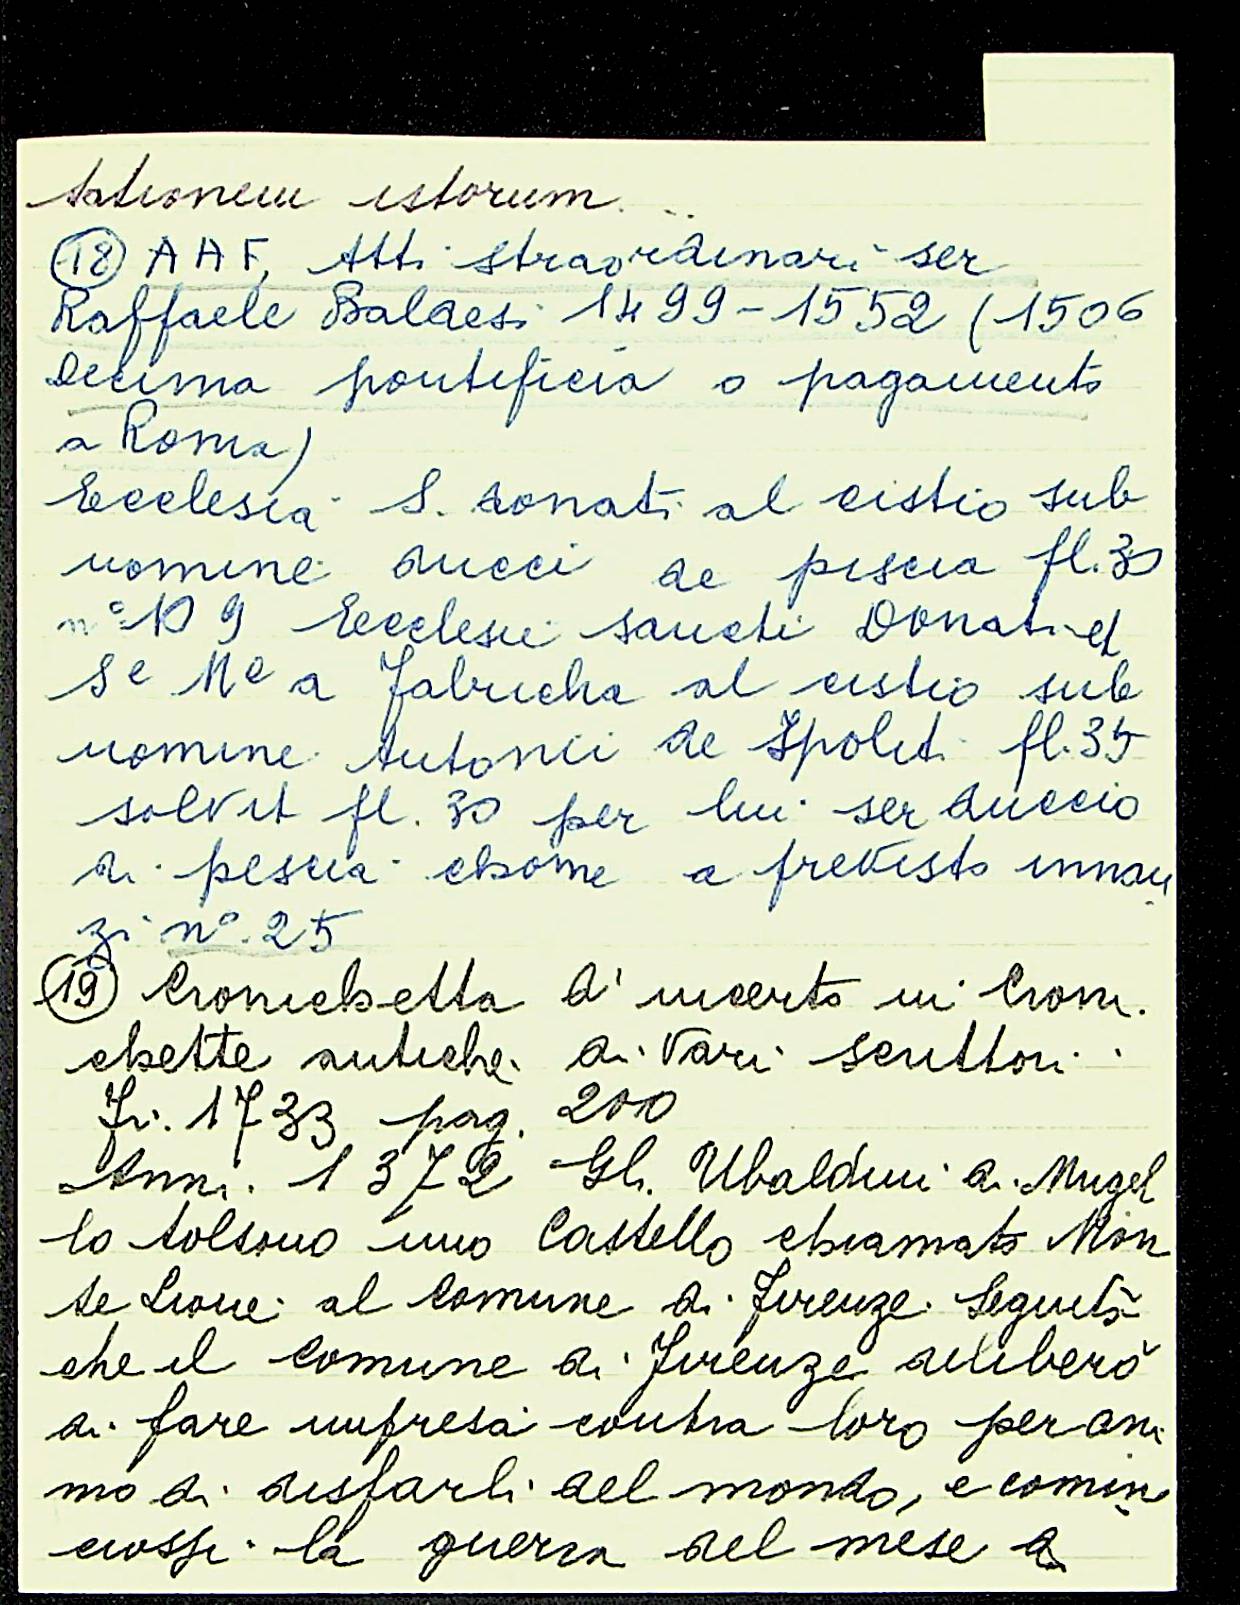 tationem istorum...
(18) AAF, Atti straordinari ser
Raffaele Baldesi 1499-1552 (1506
Decima pontificia o pagamento
a Roma)
Ecclesia S. donati al cistio sub
nomine ducci de piscia fl. 30
n° 109 Ecclesie sancti Donati et
Se Me a Fabricha al cistio sub
nomine Antonii de Spoleti fl. 35
solvit fl. 30 per lui ser duccio
di pescia chome a previsto innan
zi n°. 25
(19) Cronichetta d'incerto in Croni.
chette antiche di vari scrittori.
Fi. 1733 pag. 200
Anni. 1372 Gli Ubaldini di Mugel
lo tolsono uno Castello chiamato Mon
te Lione al Comune di Firenze. Seguitò
che il Comune di Firenze deliberò
di fare impresa contra loro per ani
mo di disfarli del mondo, e comin
ciossi la guerra del mese di